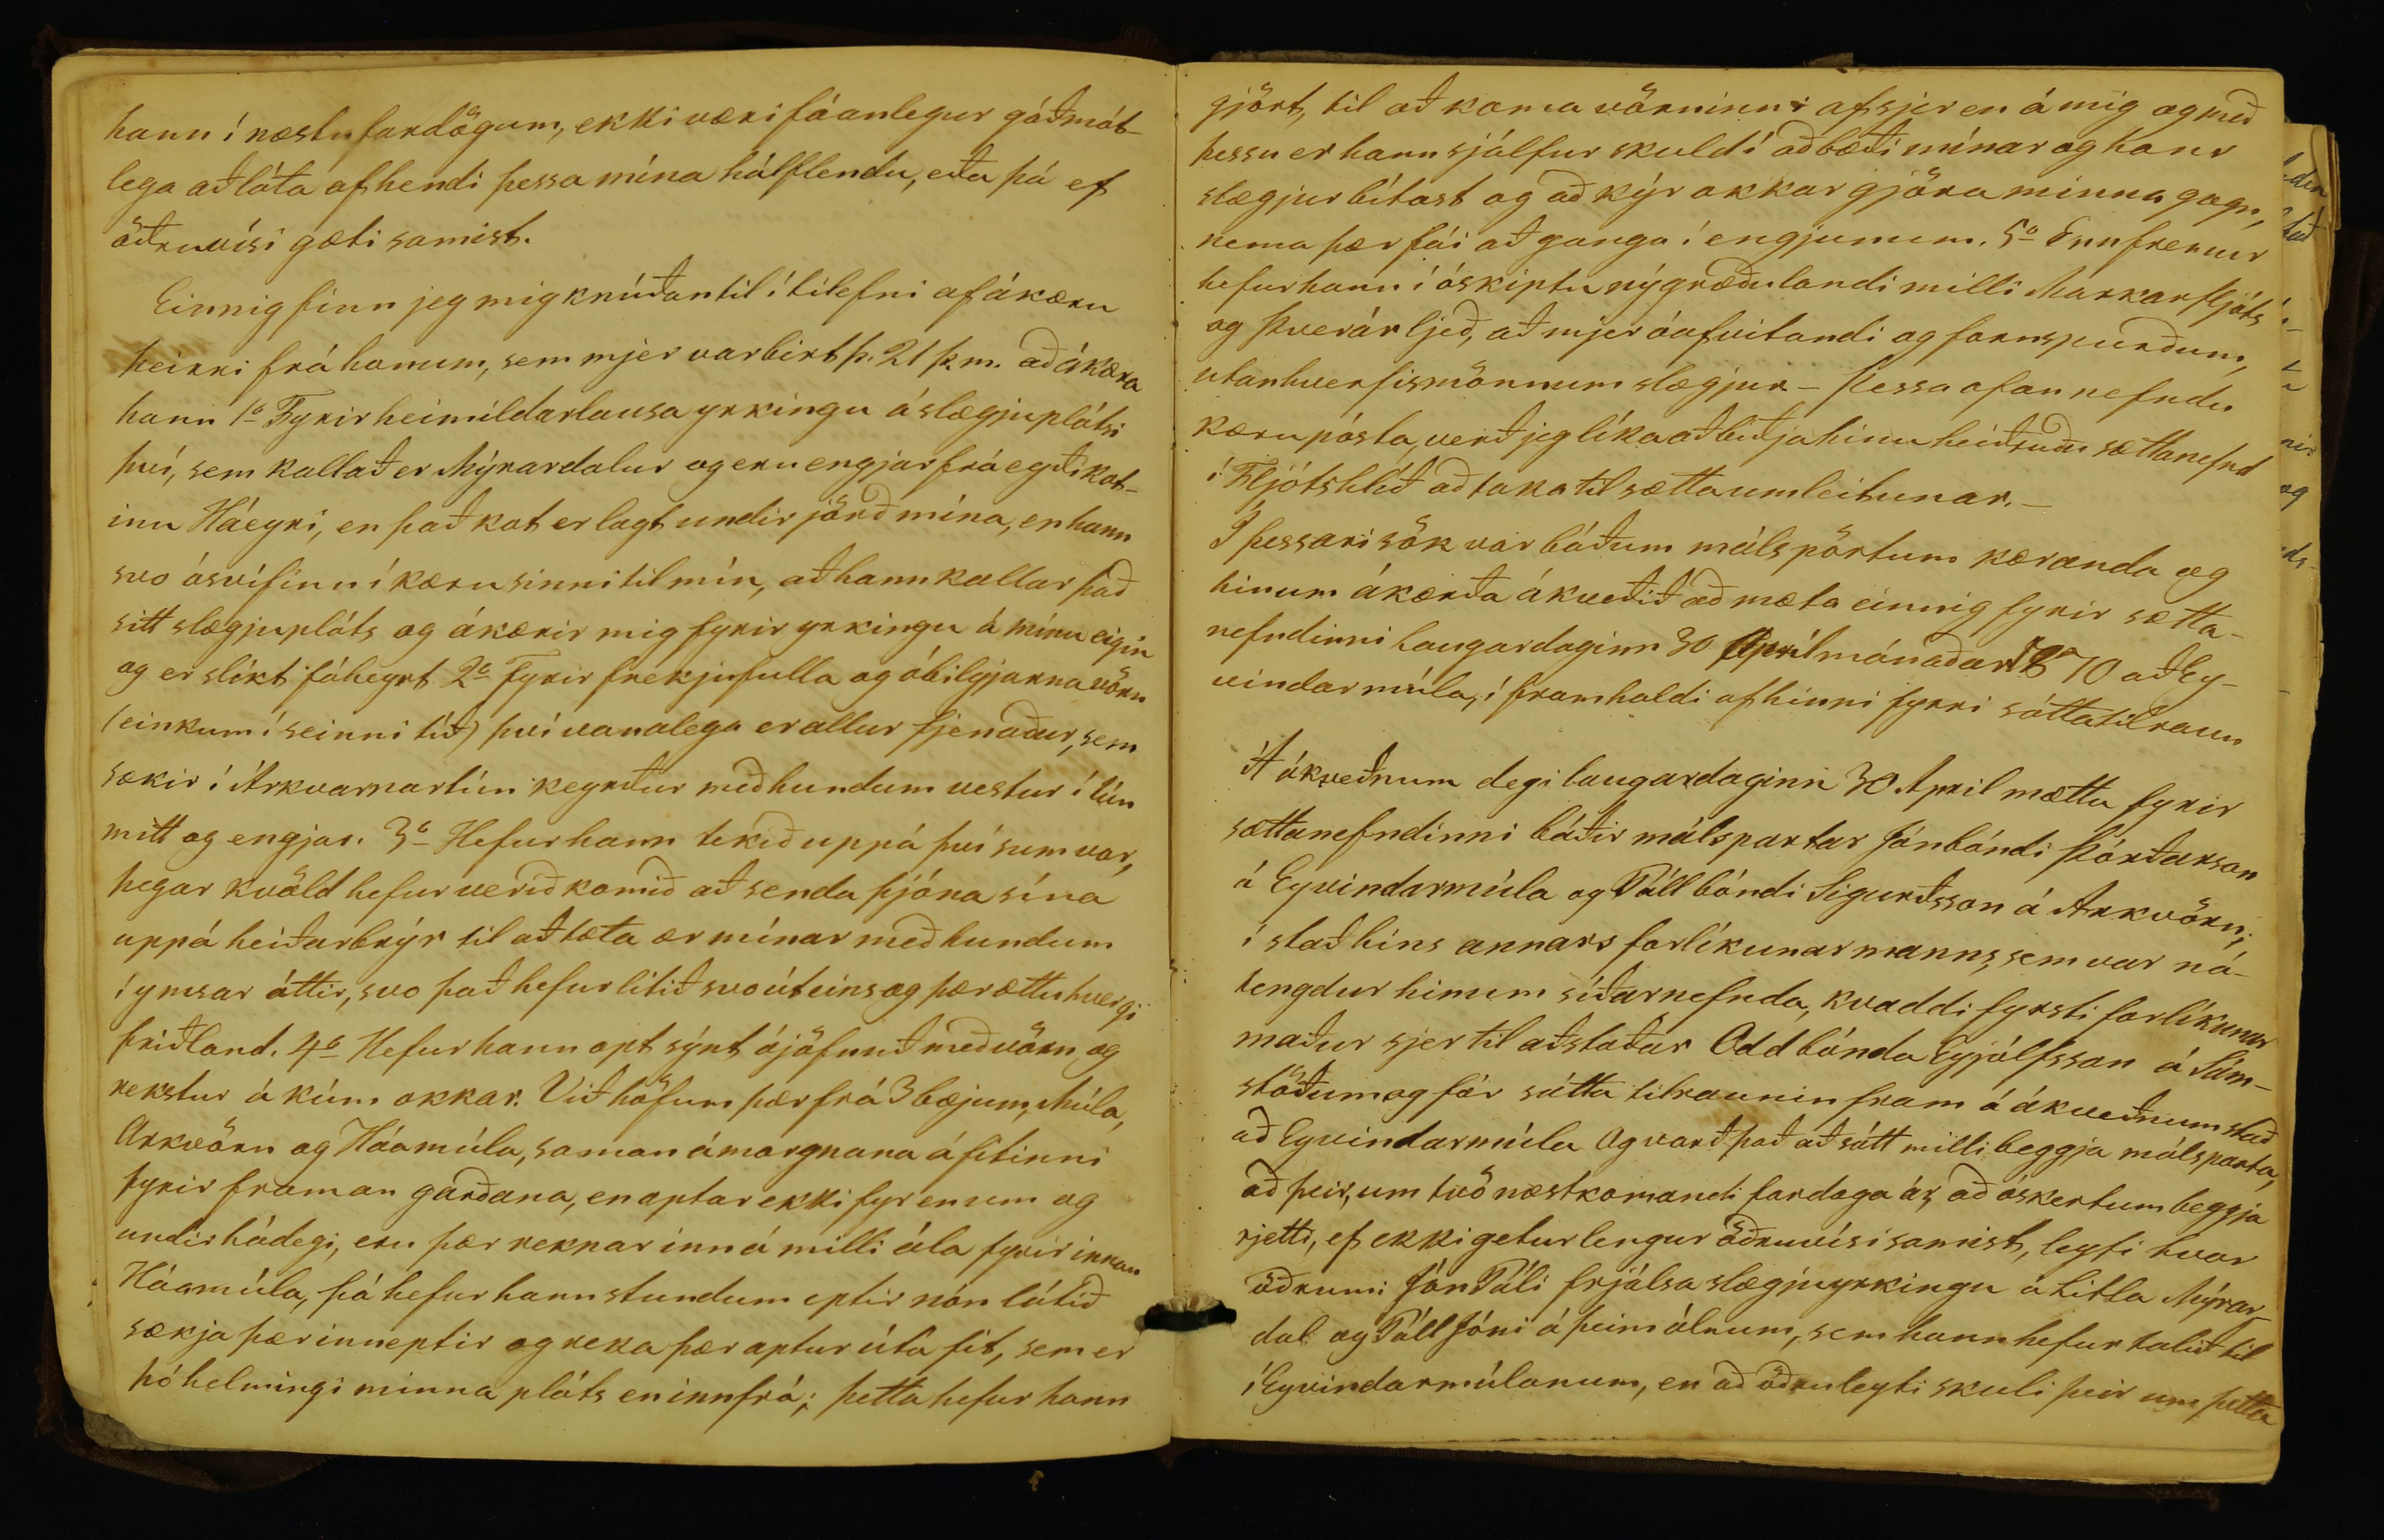 hann í næstu fardögum, ekki væri fáanlegur góðmót-
lega að láta af hendi þessa mína hálflendu, eða þá ef
öðruvísi gæti samist.
Einnig finn jeg mig knúðan til í tilefni af ákæru
þeirri frá honum, sem mjer var birt þ. 21 þ.m. að ákæra
hann 1o Fyrir heimildarlausa yrkingu á slægjuplátsi
því, sem kallað er Mýrardalur og eru engjar frá eyðikot-
inu Háeyri, en það kot er lagt undir jörð mína, en hann
svo ósvífinn í kæru sinni til mín, að hann kallar það
sitt slægjupláts og ákærir mig fyrir yrkingu á mínu eigin
og er slíkt fáheyrt 2o Fyrir frekjufulla og óbilgjarna vörn
(einkum í seinni tíð) því vanalega er allur fjenaður, sem
sækir í Arkvarnartún keyrður með hundum vestur í tún
mitt og engjar. 3o Hefur hann tekið uppá því sumvor,
þegar kvöld hefur verið komið að senda þjóna sína
uppá heiðarbrýr til að tæta ær mínar með hundum
í ymsar áttir, svo það hefur litið svo út eins og þær ættu hvergi
friðland. 4o Hefur hann opt sýnt ójöfnuð með vörn og
rekstur á kúm okkar. Við höfum þær frá 3 bæjum, Múla,
Arkvörn og Háamúla, saman á morgnana á fitinni
fyrir framan garðana, en aptar ekki fyr en um og
undir hádegi, eru þær reknar inn á milli ála fyrir innan
Háamúla, þá hefur hann stundum eptir nón látið
sækja þær inneptir og reka þær aptur útá fit, sem er
þó helmingi minna pláts en innfrá; þetta hefur hann
gjört, til að koma vörninni af sjer en á mig og með
þessu er hann sjálfur skuld í að bæði mínar og hans
slægjur bítast og að kýr okkar gjöra minna gagn,
nema þær fái að ganga í engjunum. 5o Ennfremur
hefur hann í óskiptu nýgræðulandi milli Markarfljóts
og Þverár ljeð, að mjer óafvitandi og fornspurðum,
utanhverfismönnum slægjur. – Þessa ofannefndu
kærupósta, verð jeg líka að biðja hinu heiðruðu sættanefnd
í Fljótshlíð að taka til sættaumleitunar. –
Í þessari sök var báðum málspörtum kæranda og
hinum ákærða ákveðið að mæta einnig fyrir sætta-
nefndinni laugardaginn 30 Aprílmánaðar 70 að Ey-
vindarmúla, í framhaldi af hinni fyrri sáttatilraun
Á ákveðnum degi laugardaginn 30 April mættu fyrir
sættanefndinni báðir málspartar Jón bóndi Þórðarson
á Eyvindarmúla og Páll bóndi Sigurðsson á Arkvörn;
í stað hins annars forlíkunarmanns, sem var ná-
tengdur hinum síðarnefnda, kvaddi fyrsti forlíkunar
maður sjer til aðstoðar Odd bónda Eyjólfsson á Sám-
stöðum og fór sátta tilraunin fram á ákveðnum stað
að Eyvindarmúla Og varð það að sátt milli beggja málsparta,
að þeir, um tvö næstkomandi fardaga ár, að óskertum beggja
rjetti, ef ekki getur lengur öðruvísi samist, leyfi hvor
öðrum: Jón Páli frjálsa slægjuyrkingu á Litla Mýrar-
dal og Páll Jóni á þeim álnum, sem hann hefur talið til
í Eyvindarmúlanum, en að öðruleyti skuli þeir um þetta